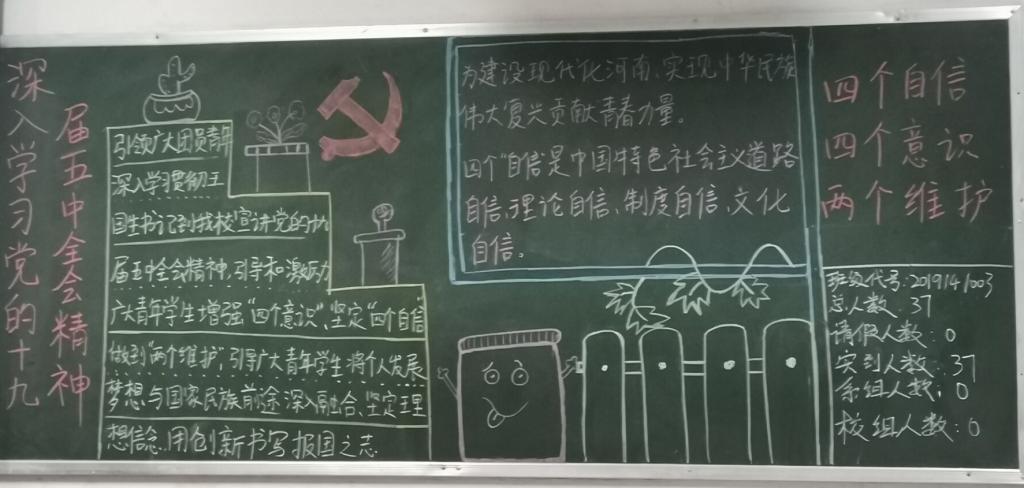 深入学习党的十九
届五中全会精神
引领广大团员青年
深入学习贯彻王
国生书记到我校宣讲党的十九
届五中全会精神,引导和激励
广大青年学生增强“四个意识”,坚定“四个自信”
做到“两个维护”,引导广大青年学生将个人发展
梦想与国家民族前途深入融合、坚定理
想信念..用创新书写报国之志
为建设现代化河南、实现中华民族
伟大复兴贡献青春力量。
四个“自信”是中国特色社会主义道路
自信、理论自信、制度自信、文化
自信。
四个自信
四个意识
两个维护
班级代号:2019141003
总人数:37
请假人数:0
实到人数:37
系组人数:0
校组人数:0